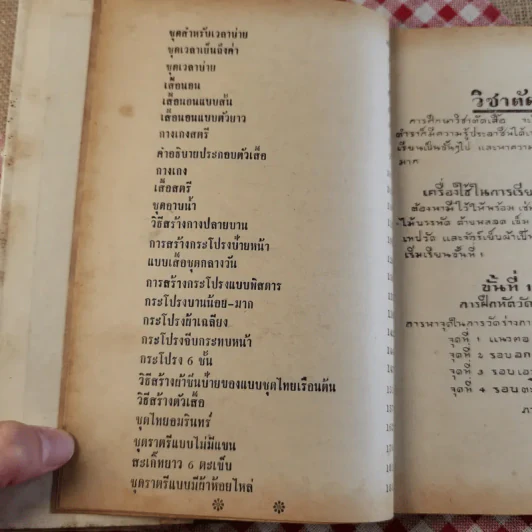 ชุดสำหรับเวลาบ่าย
ชุดเวลาเย็นถึงค่ำ
ชุดเวลาบ่าย
เสื้อนอน
เสื้อนอนแบบสั้น
เสื้อนอนแบบตัวยาว
กางเกงสตรี
คำอธิบายประกอบตัวเสื้อ
กางเกง
เสื้อสตรี
ชุดอาบน้ำ
วิธีสร้างกางปลายบาน
การสร้างกระโปรงป้ายหน้า
แบบเสื้อชุดกลางวัน
การสร้างกระโปรงแบบพิสดาร
กระโปรงบานน้อย-มาก
กระโปรงผ้าเฉลียง
กระโปรงจีบกระทบหน้า
กระโปรง 6 ชิ้น
วิธีสร้างผ้าซิ่นป้ายของแบบชุดไทยเรือนต้น
วิธีสร้างตัวเสื้อ
ชุดไทยอมรินทร์
ชุดราตรีแบบไม่มีแขน
สะเก๊ทยาว 6 ตะเข็บ
ชุดราตรีแบบมีผ้าห้อยไหล่
วิชาตัด
การศึกษาวิชาตัดเสื้อ
เรียนเป็นขั้นๆไป และหาความ
มาก
เครื่องใช้ในการเรียน
ต้องหามีไว้ให้พร้อม เช่น
ไม้บรรทัด
เริ่มเรียนขั้นที่ 1
ขั้นที่ 1
การฝึกหัดวัด
การหาจุดในการวัดร่างกาย
จุดที่ 1 แนวคอ
จุดที่ 2 รอบอก
จุดที่ 3 รอบเอว
จุดที่ 4 รอบ